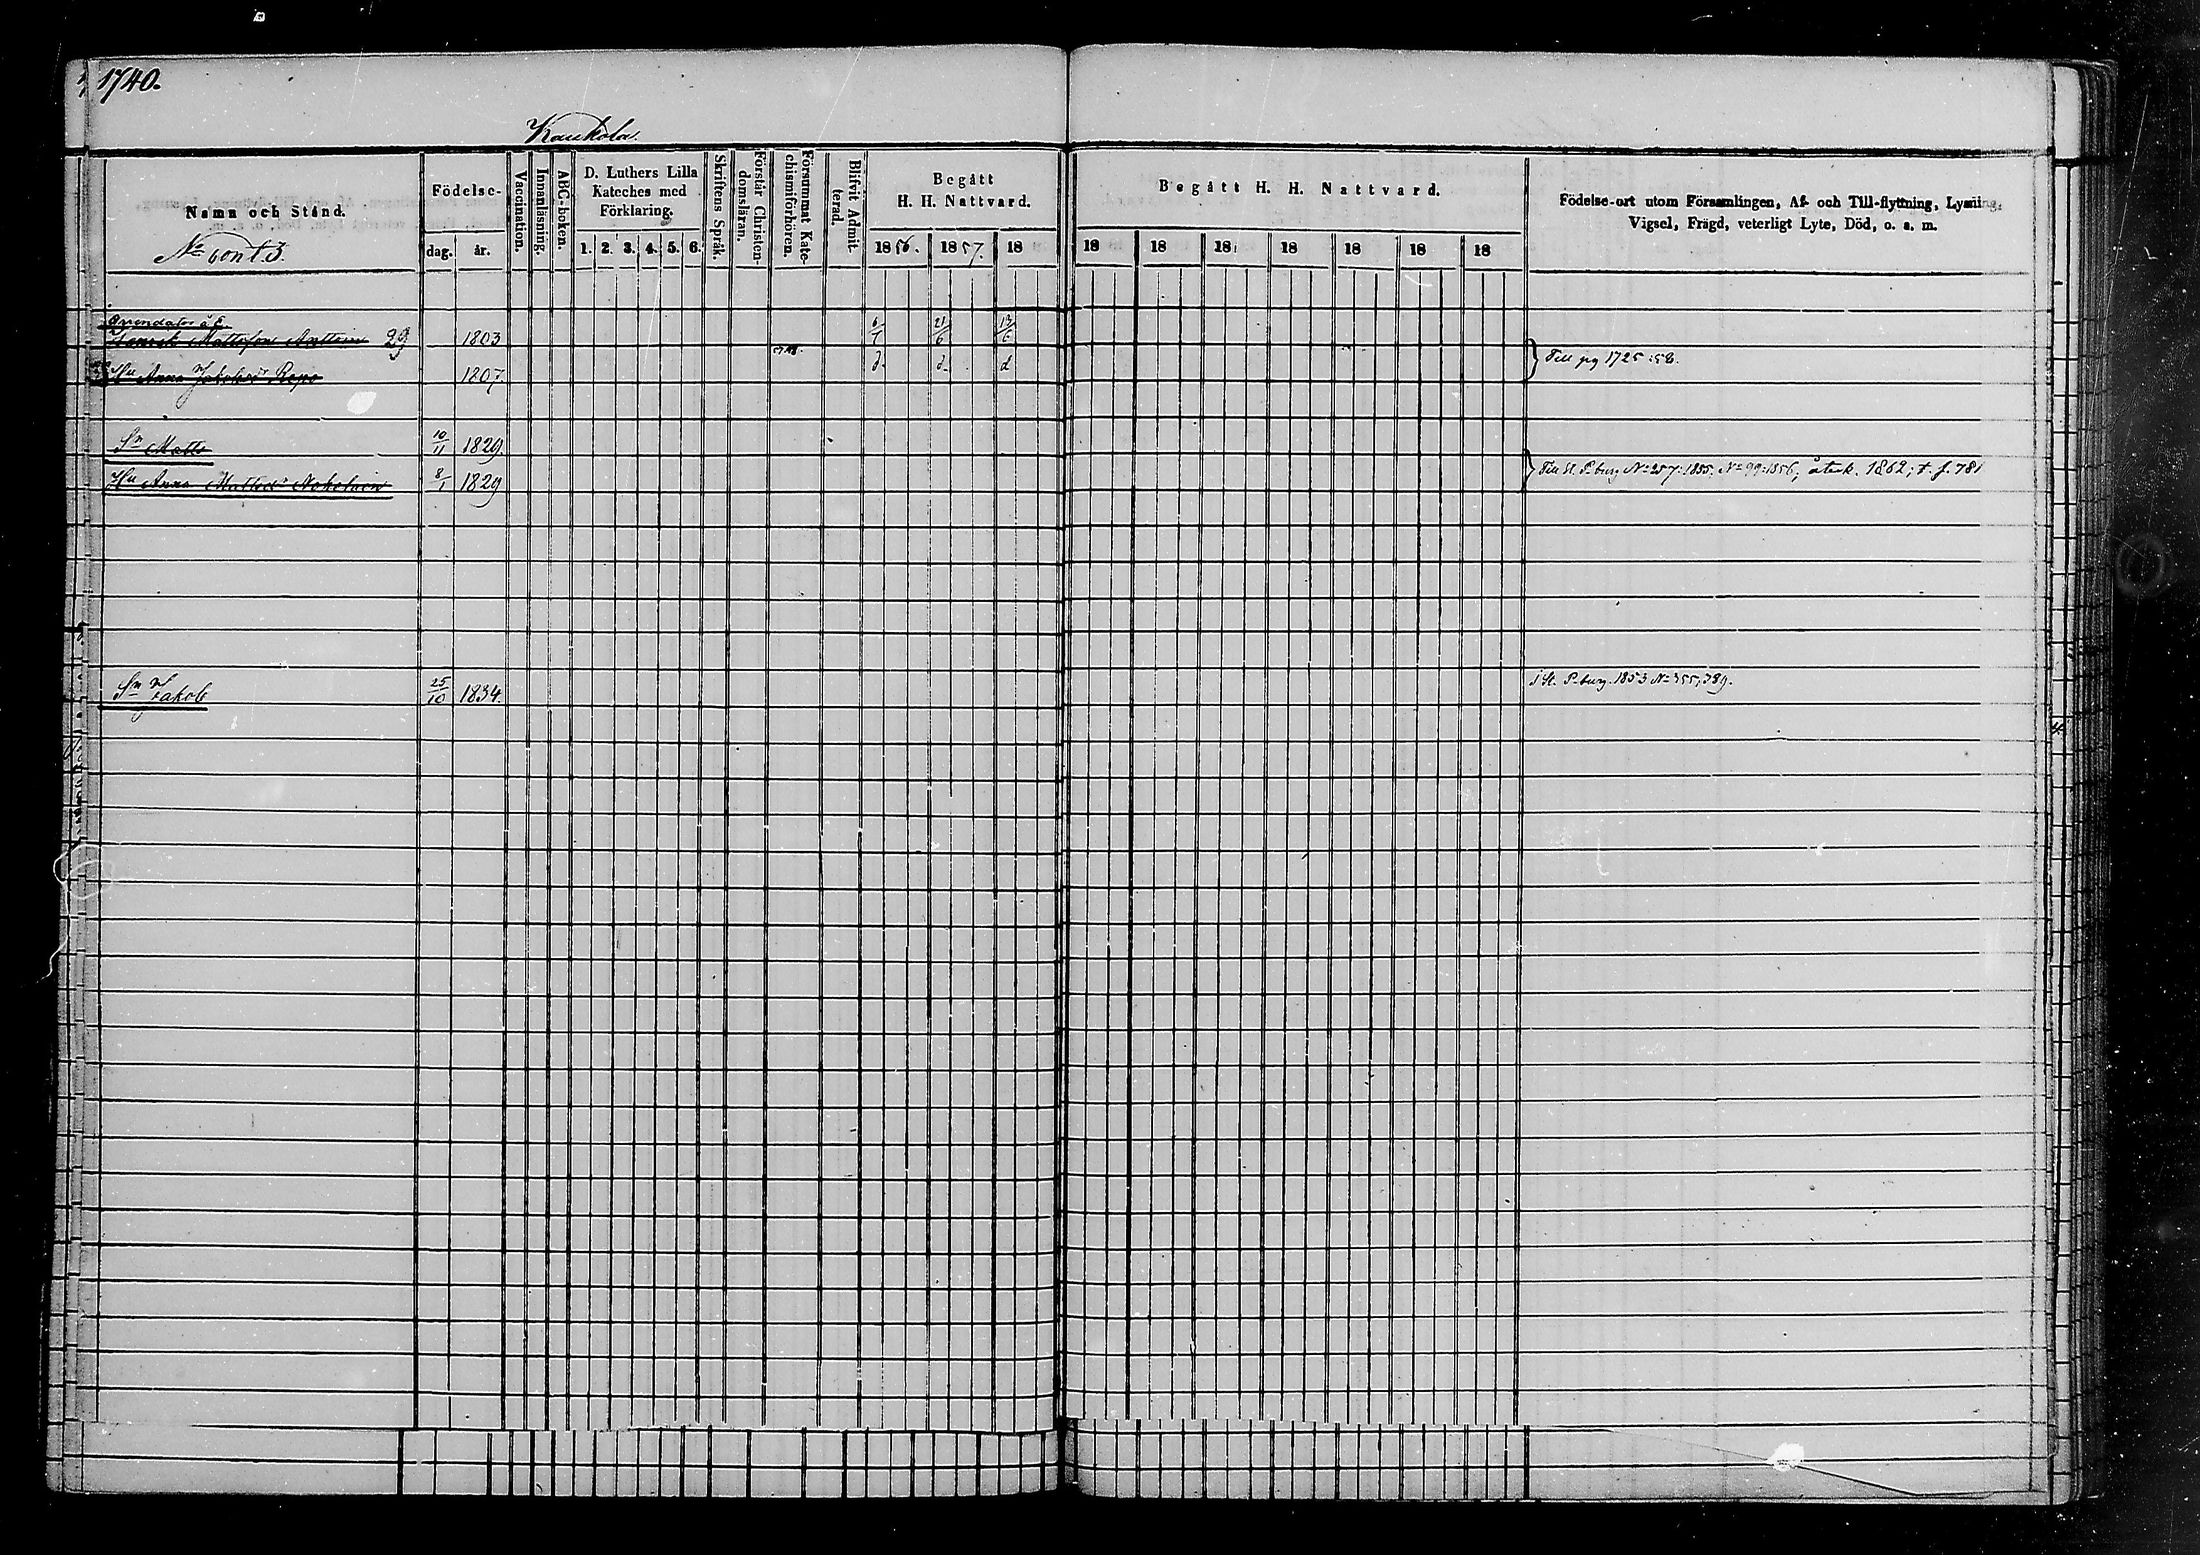 1740.
Kaukola.
Namn och Stånd.
No cont 3.
Födelse-
dag. år.
Vaccination.
Innanläsning.
ABC-boken.
D. Luthers Lilla
Kateches med
Förklaring.
1. 2. 3. 4. 5. 6.
Skriftens Språk.
Förstår Christen-
domsläran.
Försummat Kate-
chismiförhören.
Blifvit Admit-
terad.
Begått
H. H. Nattvard.
1856. 1857. 18
Begått H. H. Nattvard.
18 18 18 18 18 18 18
Födelse-ort utom Församlingen, Af- och Till-flyttning, Lysning,
Vigsel, Frägd, veterligt Lyte, Död, o. s. m.
Mattsson Anttoin 29 1803 21/6 13/6
Hu Anna Jakobsdr Repo 1807. d. d. d
Till pg 1725:58.
Sn Matts 10/11 1829.
Hu Anna Mattsdr 8/1 1829
Till St. P-burg No 257:1855, No 99:1856, återk. 1862; t. f. 781
Sn Jakob 25/10 1834.
i St. P-burg. 1853 No 355, 389.